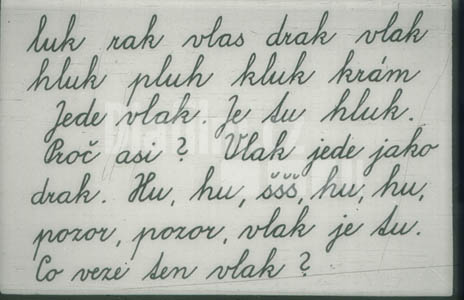 luk rak vlas drak vlak
hluk pluh kluk krám
Jede vlak. Je tu hluk.
Proč asi? Vlak jede jako
drak. Hu, hu, ššš, hu, hu,
pozor, pozor, vlak je tu.
Co veze ten vlak?